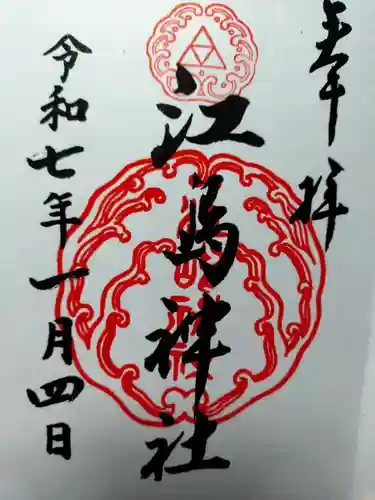 奉拝
江島神社
令和七年一月四日